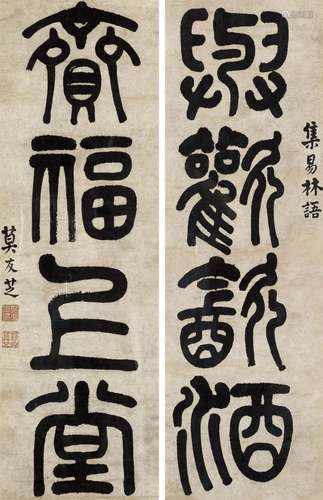 與歡飲酒
集易林語
齎福上堂
莫友芝